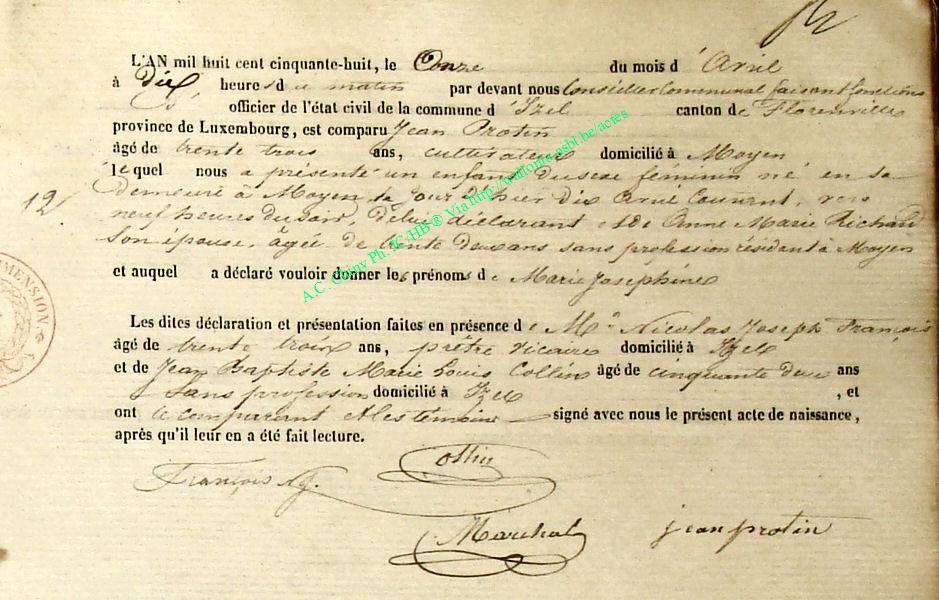 L'AN mil huit cent cinquante-huit, le Onze du mois d'Avril
à Dix heures du matin par devant nous Conseiller Communal faisant fonctions
d' officier de l'état civil de la commune d'Izel canton de Florenville
province de Luxembourg, est comparu Jean Protin
âgé de trente trois ans, cultivateur domicilié à Moyen
lequel nous a présenté un enfant du sexe féminin né en sa
12 demeure à Moyen le jour d'hier dix Avril Courant, vers
neuf heures du soir De lui déclarant et de Anne Marie Richard
Son épouse, âgée de trente deux ans sans profession résidant à Moyen
et auquel a déclaré vouloir donner les prénoms de Marie Josephine
MENSION
Les dites déclaration et présentation faites en présence de Mr Nicolas Joseph François
âgé de trente troix ans, prêtre vicaire domicilié à Izel
et de Jean Baptiste Marie Louis Collin âgé de cinquante deux ans
Sans profession domicilié à Izel , et
ont le comparant et les témoins signé avec nous le présent acte de naissance,
après qu'il leur en a été fait lecture.
Collin
François
Maréchal jean protin
A.C. Chiny Ph. AC/HB ® Via http://wallonia.nshl.be/actes